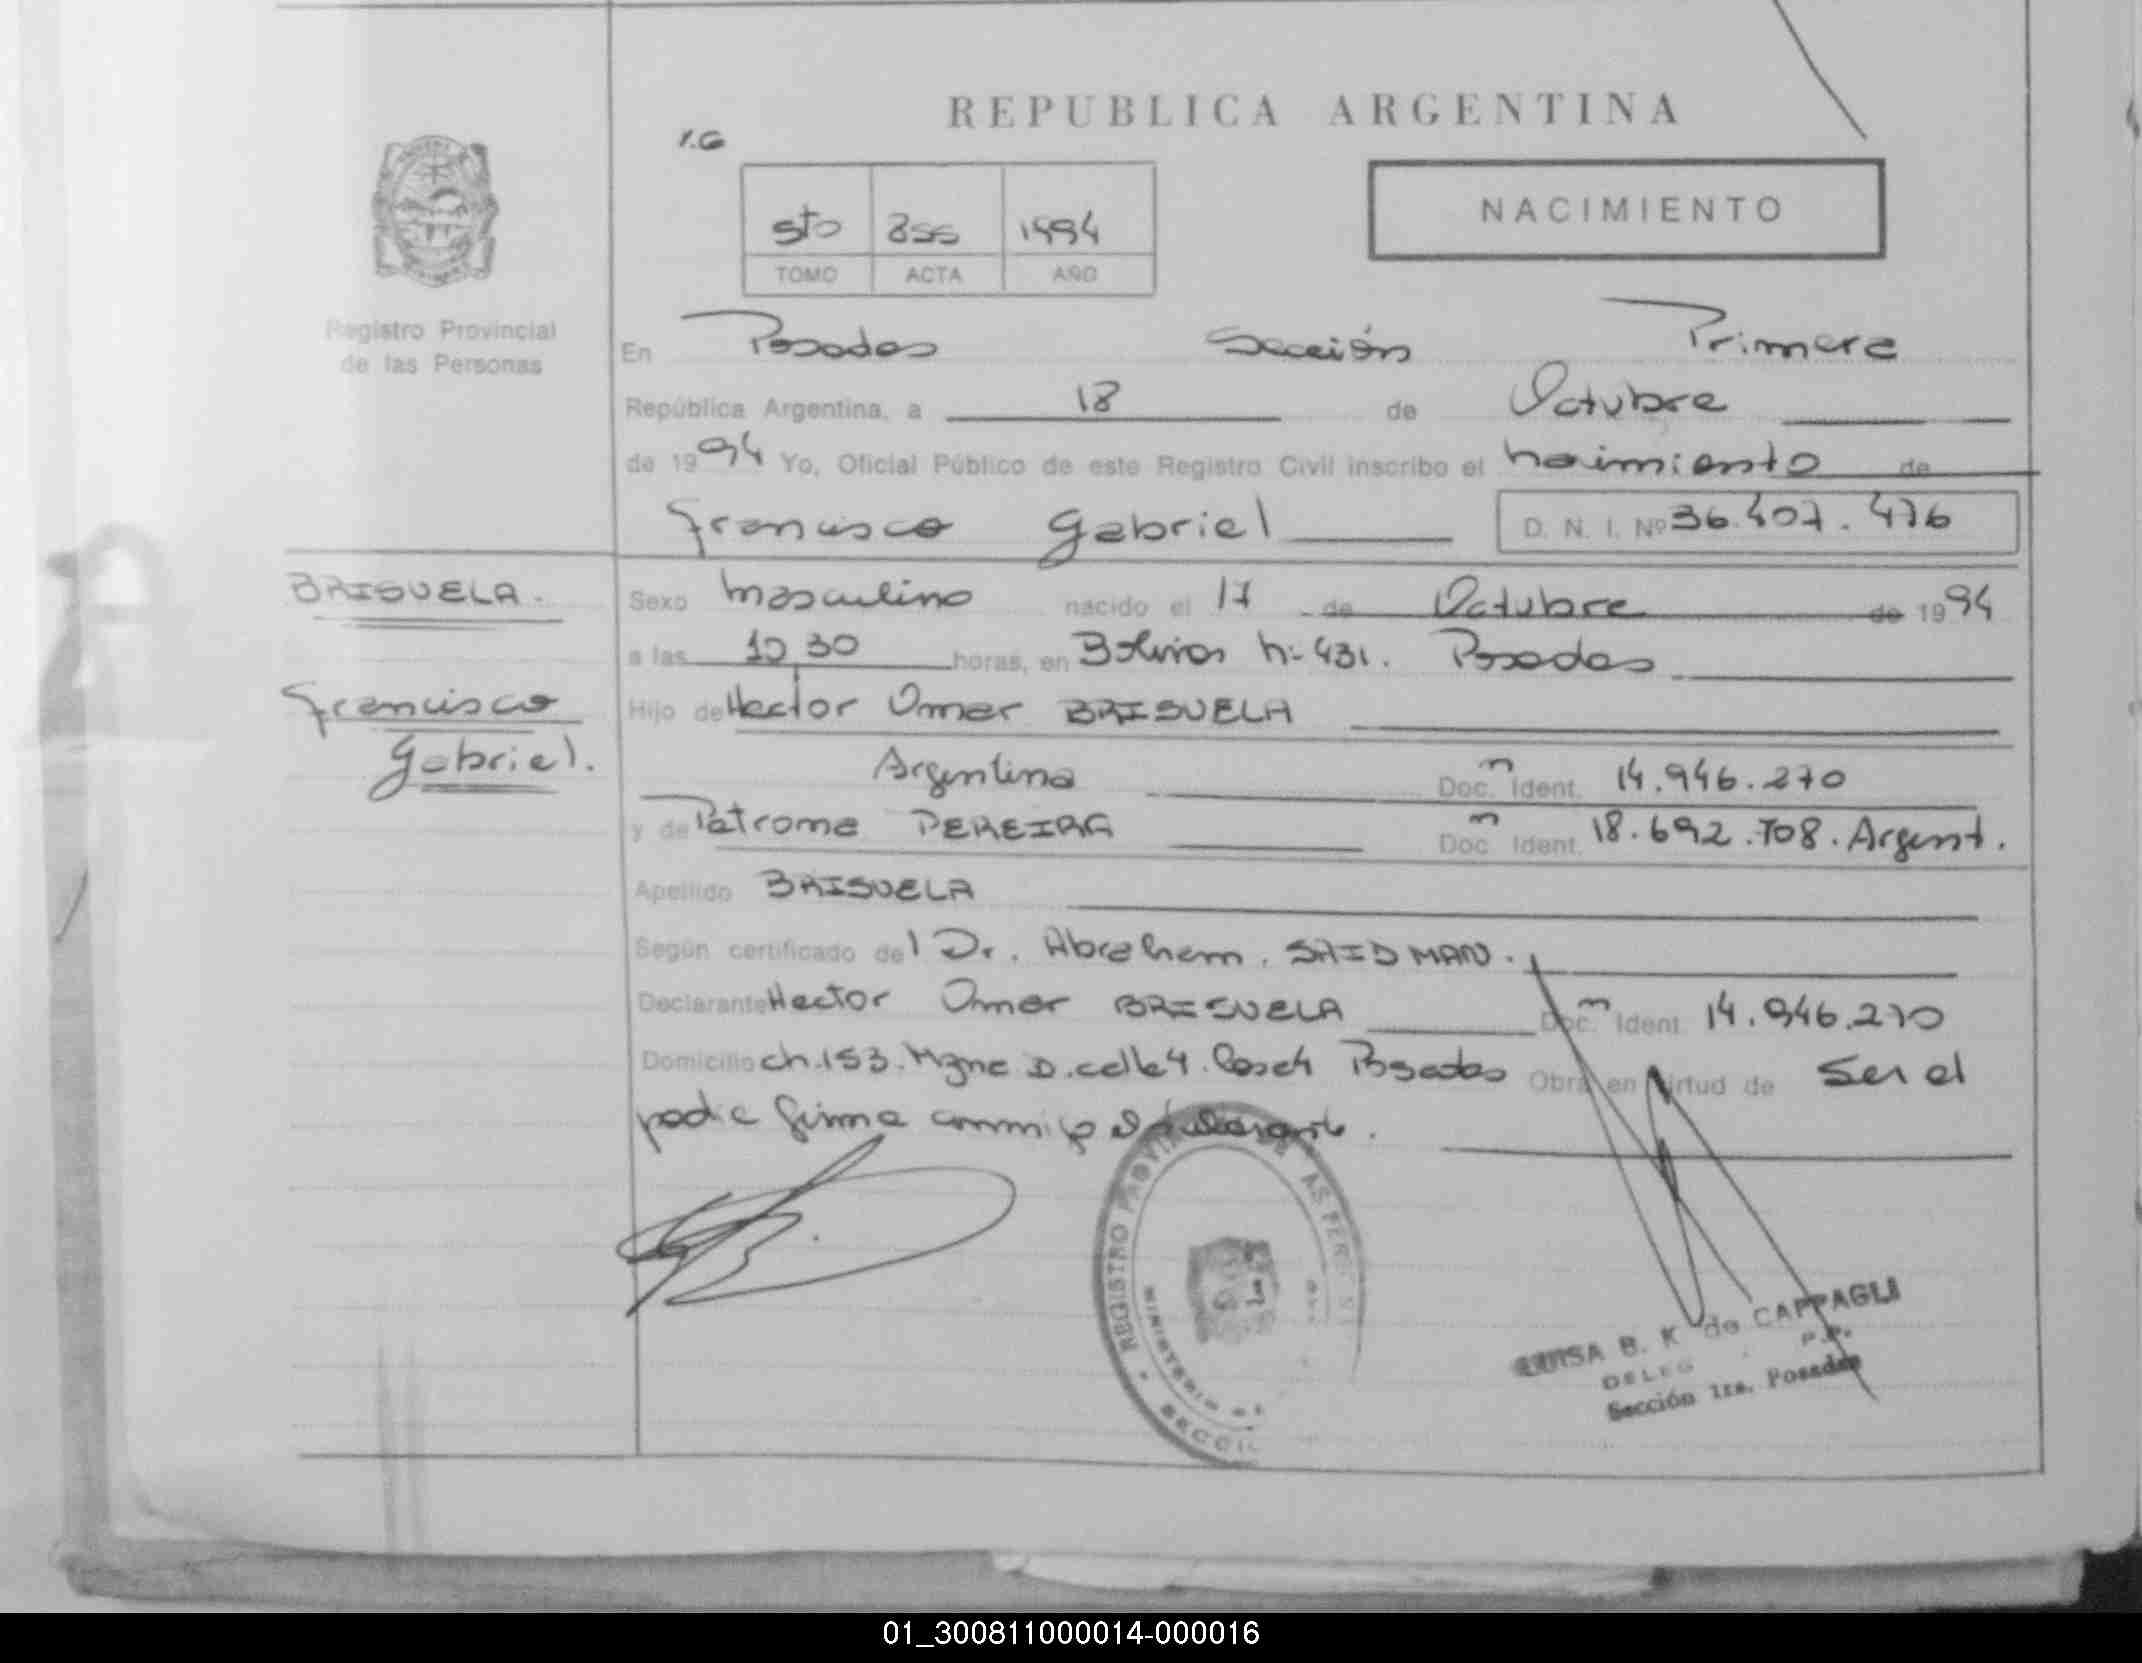 REPUBLICA ARGENTINA
1.G
5to 855 1994
TOMO ACTA AÑO
NACIMIENTO
Registro Provincial
de las Personas
En Posadas Sección Primera
República Argentina, a 18 de Octubre
de 1994 Yo, Oficial Público de este Registro Civil inscribo el nacimiento de
Francisco Gabriel D. N. I. Nº 36.407.476
BRISUELA.
Francisco
Gabriel.
Sexo masculino nacido el 17 de Octubre de 1994
a las 10,30 horas, en Bolivar n: 431. Posadas
Hijo de Hector Omar BRISUELA
Argentina Doc. Ident. 14.946.270
y de Petrona PEREIRA Doc. Ident. 18.692.708. Argent.
Apellido BRISUELA
Según certificado del Dr. Abraham. SAIDMAN.
Declarante Hector Omar BRISUELA Doc. Ident. 14.946.270
Domicilio ch.153. Mzna D. calle 4. Casa 4 Posadas Obra en virtud de Ser el
padre firma conmigo el declarante.
REGISTRO
MINISTERIO
LUISA B. K de CAPPAGLI
Sección 1ra. Posadas
01_300811000014-000016